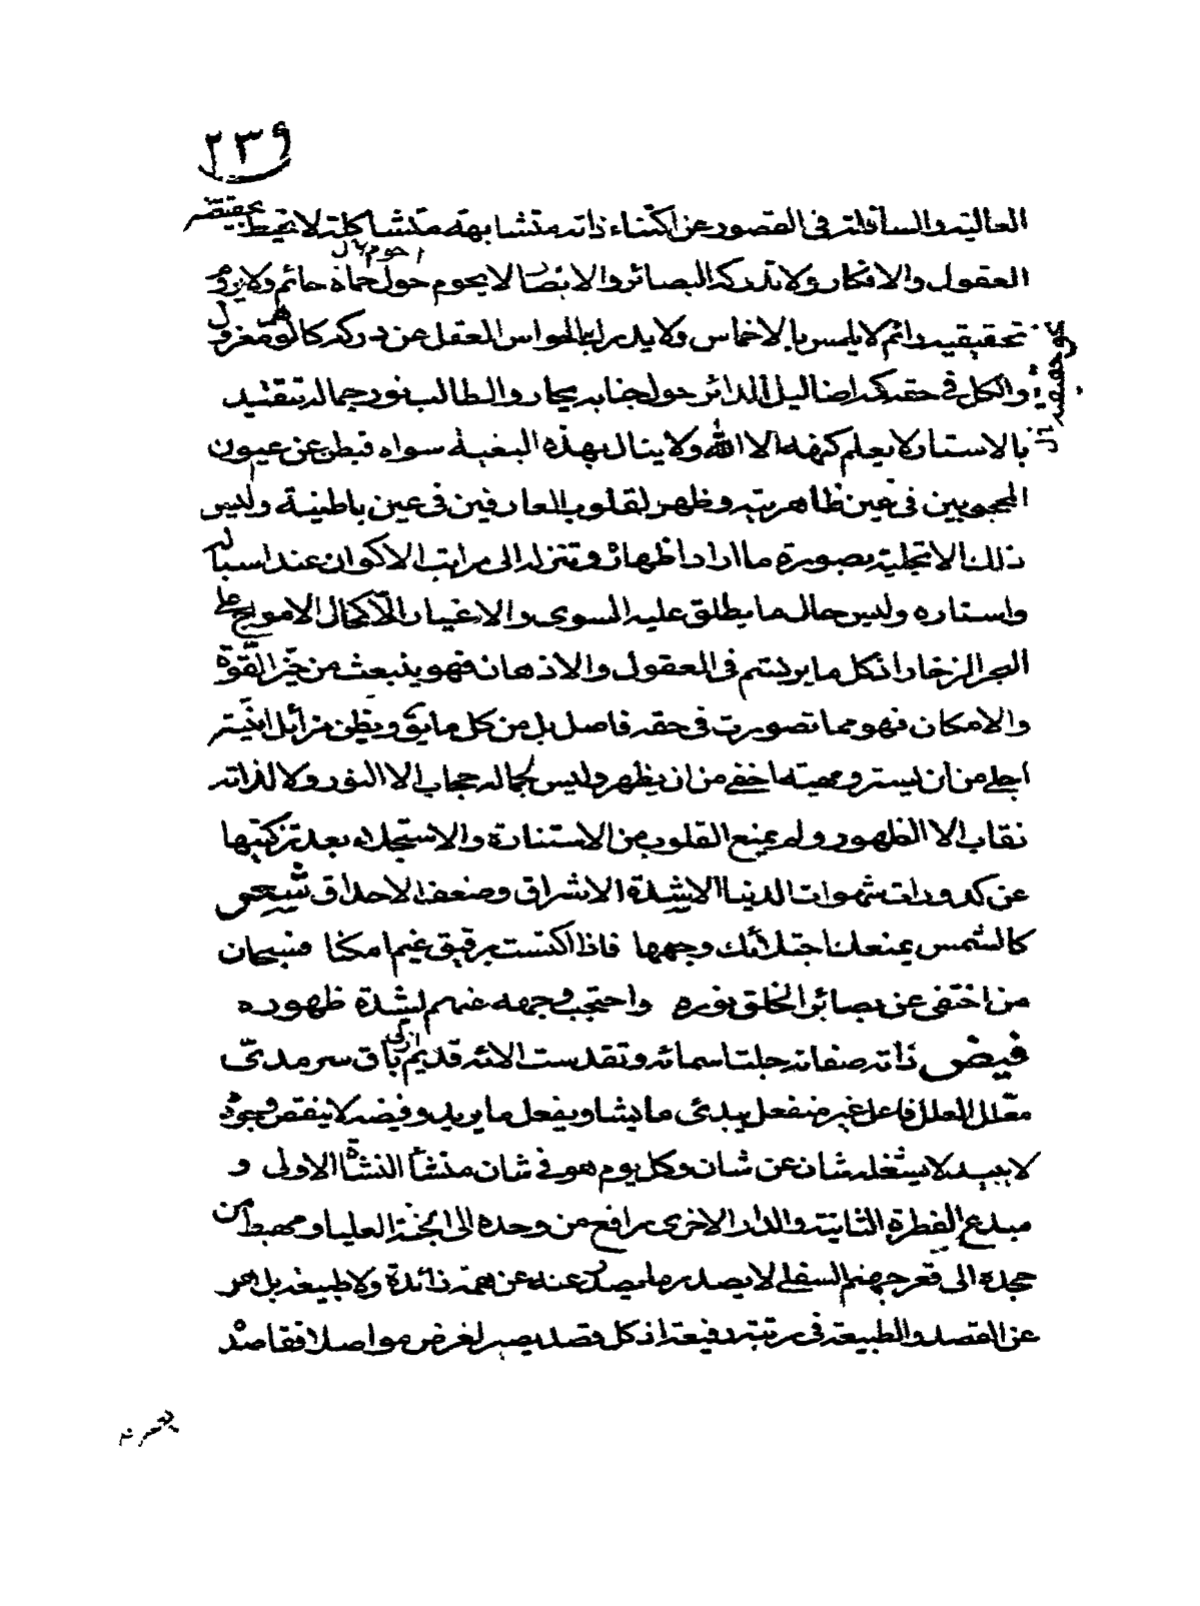 ٢٣٩
العالية والسافلة فى القصور عن اكتناء ذاته متشابهة متشاكلة لا تحيط بحقيقته
العقول والافكار ولا تدركه البصائر والابصار لا يحوم حول حماه حائم ولا يروم
تحقيقيه دائم لا يلمس بالاخماس ولا يدرك بالحواس العقل عن دركه كالوهم معزول
والكل فى حقه كه اضاليل الدائر حول جنابه يحار والطالب نور جماله تتقيد
بالاستار لا يعلم كنهه الا الله ولا ينال بهذه البغية سواه فبطن عن عيون
المحجوبين فى عين ظاهريته وظهر لقلوب العارفين فى عين باطنية وليس
ذلك الا تجليه بصورة ما اراد اظهاره وتنزله الى مراتب الاكوان عند اسباله
واستاره وليس حال ما يطلق عليه السوى والاغيار الا كحال الامواج على
البحر الزخار اذ كل ما يرتسم فى العقول والاذهان فهو ينبعث من حيز القوة
والامكان فهو مما تصورت فى حقه فاصل بل من كل ما يق ويظن مزائل انيته
اجلى من ان يستر ومهيته اخفى من ان يظهر وليس لجماله حجاب الا النور ولا لذاته
نقاب الا الظهور ولم يمنع القلوب من الاستنارة والاستجلاء بعد تزكيتها
عن كدورات شهوات الدنيا الا لشدة الاشراق وضعف الاحداق شعر
كالشمس يمنعك اجتلائك وجهها فاذا اكتست برقيق غيم امكنا فسبحان
من اختفى عن بصائر الخلق بنوره واحتجب وجهه عنهم لشدة ظهوره
فيض ذاته صفاته جلت اسمائه وتقدست الائه قديم ازلى باق سرمدى
معلل العلل فاعل غير منفعل يبدئ ما يشاء ويفعل ما يريد وفيضه لا ينقص وجوده
لا يبيد لا يشغله شان عن شان وكل يوم هو فى شان منشأ النشأة الاولى و
مبدع الفطرة الثانية والدار الاخرى رافع من وحده الى الجنة العليا ومهبط من
جحده الى قعر جهنم السفلى لا يصدر ما يصدر عنه عن همة زائدة ولا طبيعة بل
عن القصد والطبيعة فى مرتبة رفيعة اذ كل قصد يصير لغرض مواصلا فقاصد